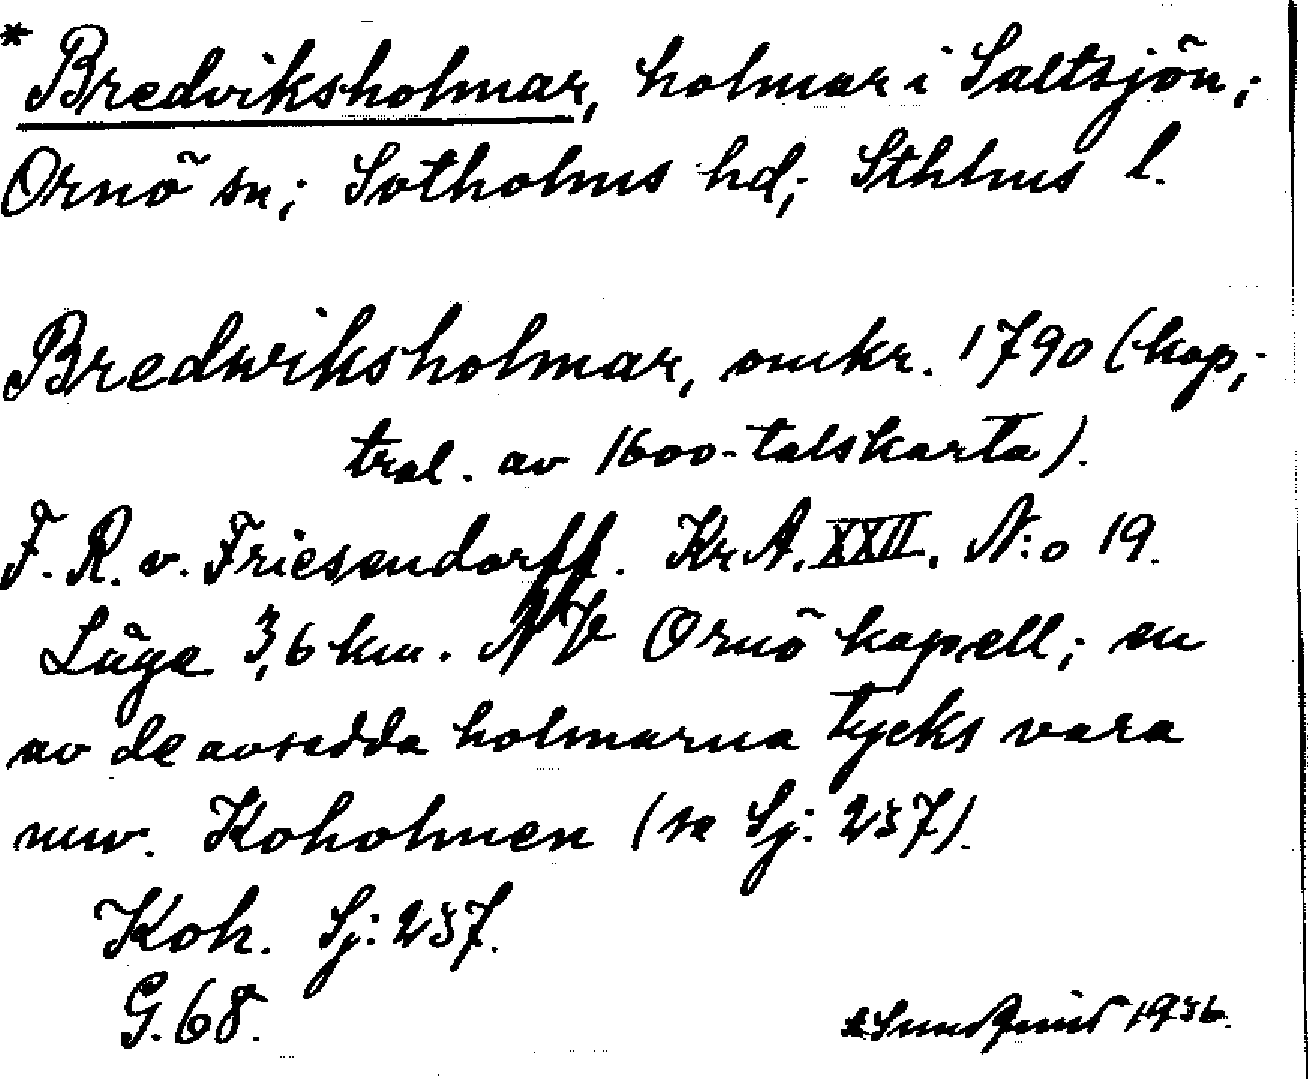 * Bredviksholmar, holmar i Saltsjön;
Ornö sn; Sotholms hd; Sthlms l.
Bredwiksholmar, omkr. 1790 (kop;
trol. av 1600-talskarta).
F. R. v. Friesendorff. KrA. XXII. N:o 19.
Läge 3,6 km. NV Ornö kapell; en
av de avsedda holmarna tycks vara
nuv. Koholmen (se Sj: 237).
Koh. Sj: 237.
G. 68.
Sundquist 1936.